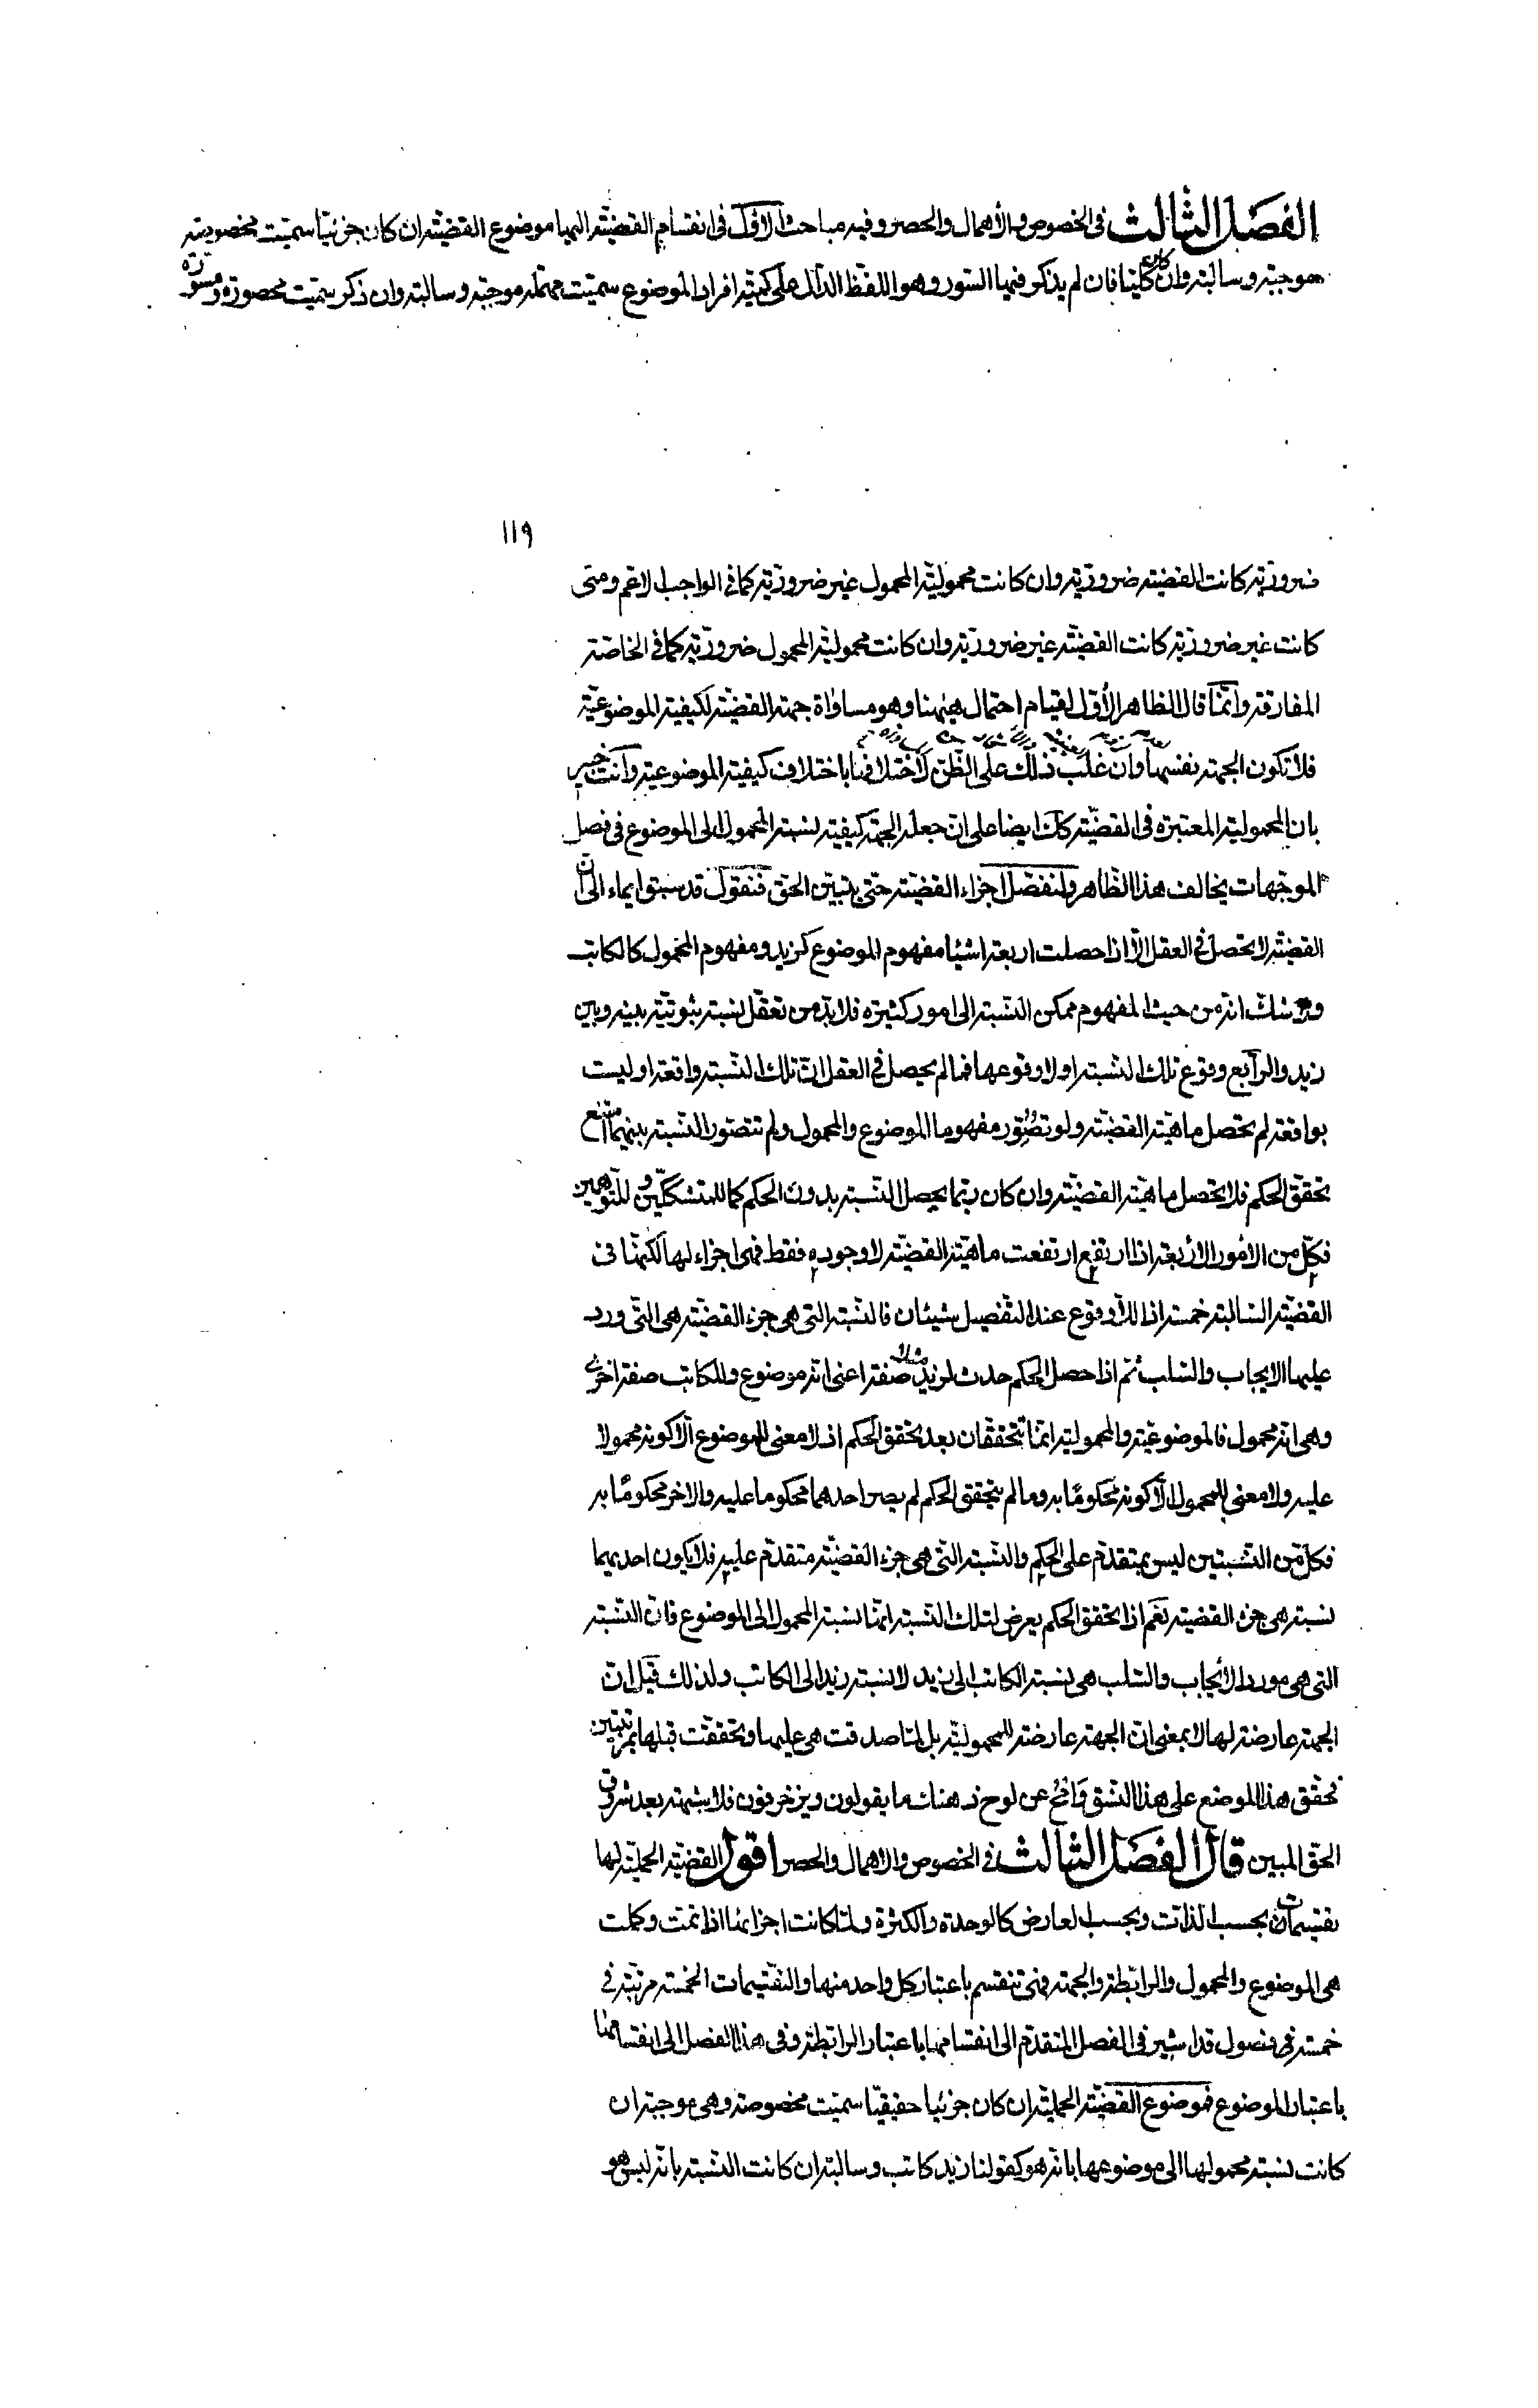 الفصل الثالث في الخصوص والأهمال والحصر وفيه مباحث الاول في انقسام القضيّة اليها موضوع القضيّة ان كان جزئيّا سميّت مخصوصة
موجبة وسالبة وان كان كليّا فان لم يذكر فيها السور وهو اللفظ الدالّ على كميّة افراد الموضوع سميّت مهملة موجبة وسالبة وان ذكر سميّت محصورة ومسورة
١١٩
ضروريّة كانت القضيّة ضروريّة وان كانت محموليّة المحمول غير ضروريّة كما في الواجب الاعم ومتى
كانت غير ضروريّة كانت القضيّة غير ضروريّة وان كانت محموليّة المحمول ضروريّة كما في الخاصّة
المفارقة وانّما قال الظاهر الأوّل لقيام احتمال هيهنا وهو مساواة جهة القضيّة لكيفية الموضوعيّة
فلا تكون الجهة نفسها وان غلب ذلك على الظن لاختلافها باختلاف كيفية الموضوعية وانت خبير
بان المحمولية المعتبرة في القضيّة كك ايضا على انّ جعله الجهة كيفية لنسبة المحمول الى الموضوع في فصل
الموجّهات يخالف هذا الظاهر ولنفصّل اجزاء القضيّة حتّى يتبيّن الحق فنقول قد سبق ايماء الى انّ
القضيّة لا يحصل في العقل الّا اذا حصلت اربعة اشيا مفهوم الموضوع كزيد ومفهوم المحمول كالكاتب
ولا شك انّه من حيث المفهوم ممكن النّسبة الى امور كثيرة فلا بدّ من تعقّل نسبة ثبوتيّة بينه وبين
زيد والرّابع وقوع تلك النّسبة او لا وقوعها فما لم يحصل في العقل انّ تلك النّسبة واقعة او ليست
بواقعة لم يحصل ماهيّة القضيّة ولو تصوّر مفهوما الموضوع والمحمول ولم تتصور النّسبة بينهما امتنع
تحقق الحكم فلا يحصل ماهيّة القضيّة وان كان ربّما يحصل النّسبة بدون الحكم كما للمتشككين وللمتوهمين
فكلّ من الامور الأربعة اذا ارتفع ارتفعت ماهيّة القضيّة لا وجوده فقط فهى اجزاء لها لكنّها في
القضيّة السّالبة خمسة اذ اللّاوقوع عند التّفصيل شيئان فالنّسبة التي هى جزء القضيّة هى التّى ورد
عليها الايجاب والسّلب ثمّ اذا حصل الحكم حدث لزيد مثلا صفة اعنى انّه موضوع وللكاتب صفة اخرى
وهى انّه محمول فالموضوعيّة والمحمولية انّما تتحققان بعد تحقق الحكم اذ لا معنى للموضوع الّا كونه محمولا
عليه ولا معنى للمحمول الّا كونه محكومًا به وما لم يتحقق الحكم لم يصر احدهما محكوما عليه والاخر محكومًا به
فكلّ من النّسبتين ليس بمتقدّم على الحكم والنّسبة التّى هى جزء القضيّة متقدّم عليه فلا يكون احديهما
نسبة هى جزء القضية نعم اذا تحقق الحكم يعرض لتلك النّسبة انّها نسبة المحمول الى الموضوع فانّ النّسبة
التى هى مورد الأيجاب والسّلب هى نسبة الكاتب الى زيد لا نسبة زيد الى الكاتب ولذلك قيل انّ
الجهة عارضة لها لا بمعنى انّ الجهة عارضة للمحموليّة بل لما صدقت هى عليها وتحققت قبلها بمرتبتين
تحقق هذا الموضع على هذا النّسق وامح عن لوح ذهنك ما يقولون ويزخرفون فلا شبهة بعد شروق
الحق المبين قال الفصل الثالث في الخصوص والاهمال والحصر اقول القضيّة الحمليّة لها
تقسيمات بحسب الذات وبحسب العارض كالوحدة والكثرة ولمّا كانت اجزائها اذا تمّت وكملت
هى الموضوع والمحمول والرابطة والجهة فهى تنقسم باعتبار كل واحد منها والتقسيمات الخمسة مرتّبة في
خمسة فصول قد اشير في الفصل المتقدّم الى انقسامها باعتبار الرابطة وفى هذا الفصل الى انقسامها
باعتبار الموضوع فموضوع القضيّة الحمليّة ان كان جزئيا حقيقيّا سميّت مخصوصة وهى موجبة ان
كانت نسبة محمولها الى موضوعها بانّه هو كقولنا زيد كاتب وسالبة ان كانت النّسبة بانّه ليس هو